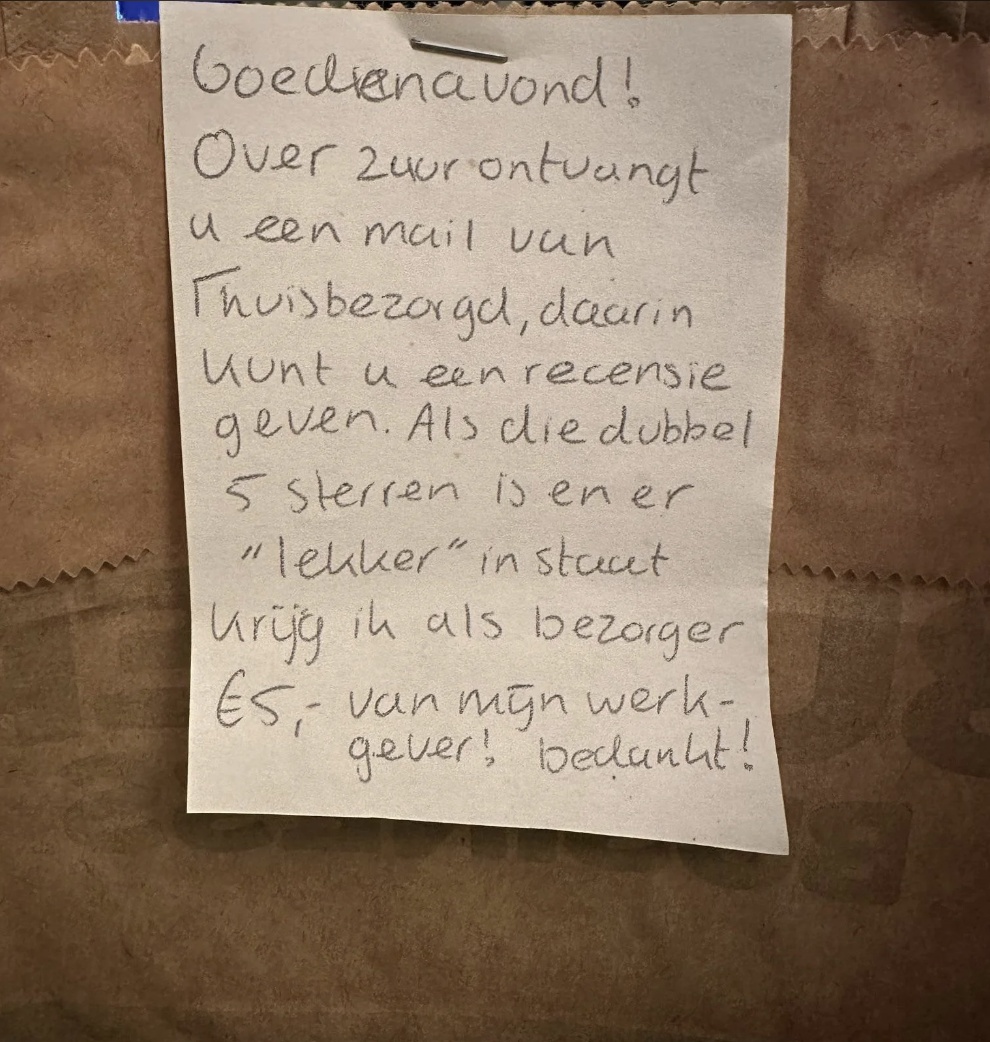 Goedenavond!
Over 2 uur ontvangt
u een mail van
Thuisbezorgd, daarin
kunt u een recensie
geven. Als die dubbel
5 sterren is en er
"lekker" in staat
krijg ik als bezorger
€5,- van mijn werk-
gever! bedankt!